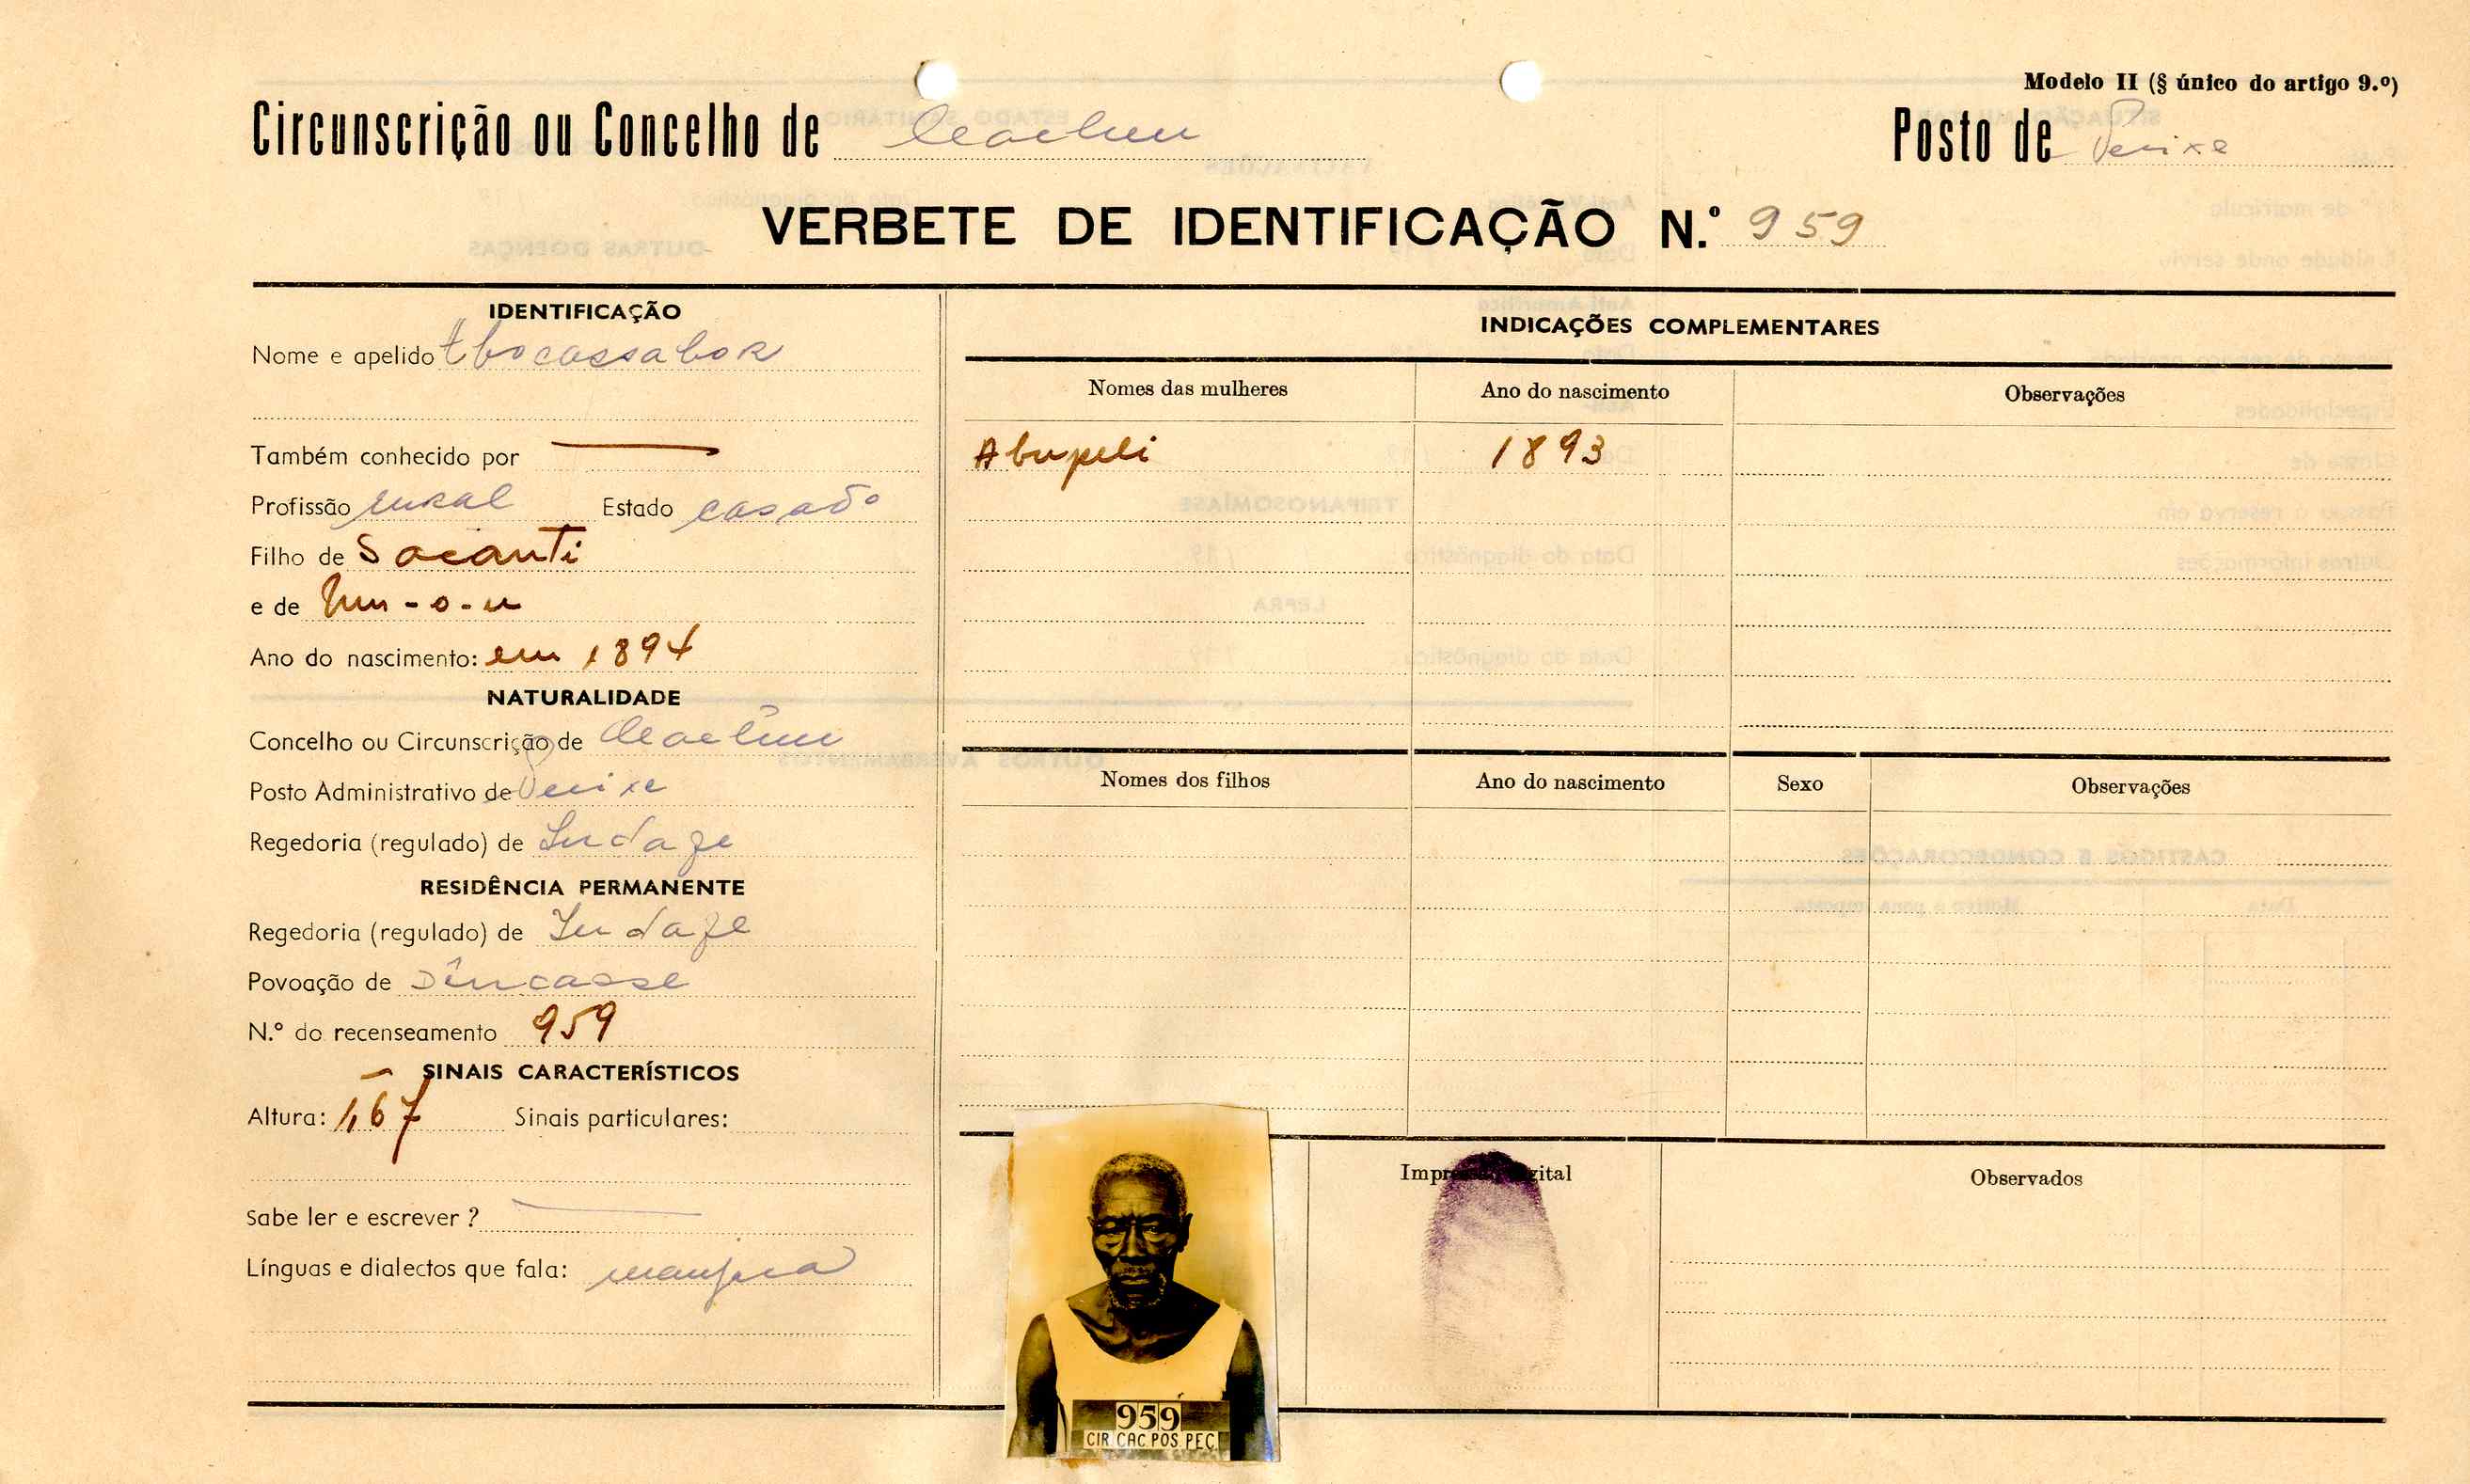 Modelo II (§ único do artigo 9.º)
Circunscrição ou Concelho de Cacheu
Posto de Pecixe
VERBETE DE IDENTIFICAÇÃO N.º 959
IDENTIFICAÇÃO
Nome e apelido
Também conhecido por
Profissão rural Estado casado
Filho de Sacanti
e de
Ano do nascimento: em 1894
NATURALIDADE
Concelho ou Circunscrição de Cacheu
Posto Administrativo de Pecixe
Regedoria (regulado) de
RESIDÊNCIA PERMANENTE
Regedoria (regulado) de
Povoação de
N.º do recenseamento 959
SINAIS CARACTERÍSTICOS
Altura: 1,67 Sinais particulares:
Sabe ler e escrever ?
Línguas e dialectos que fala:
INDICAÇÕES COMPLEMENTARES
Nomes das mulheres Ano do nascimento Observações
Abupeli 1893
Nomes dos filhos Ano do nascimento Sexo Observações
Impressão digital
Observados
959
CIR CAC POS PEC